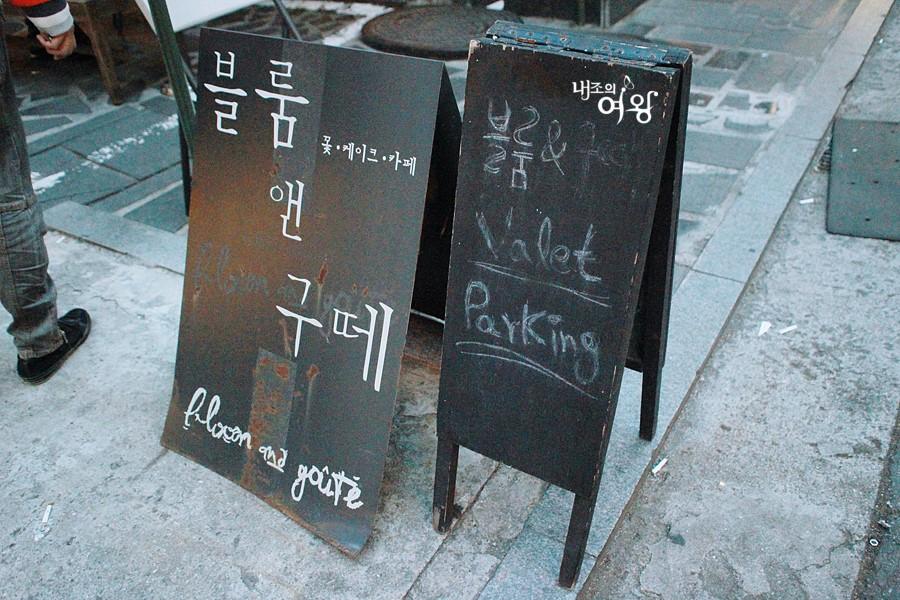 블룸
꽃·케이크·카페
앤
구떼
bloom and goûté
내조의
여왕
블룸 &
Valet
Parking